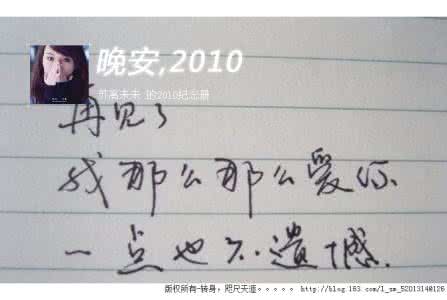 晚安,2010
苏离未末 的2010纪念册
再见了
我那么那么爱你
一点也不遗憾.
版权所有-转身，咫尺天涯。。。。。 http://blog.163.com/l_sm_52013140126